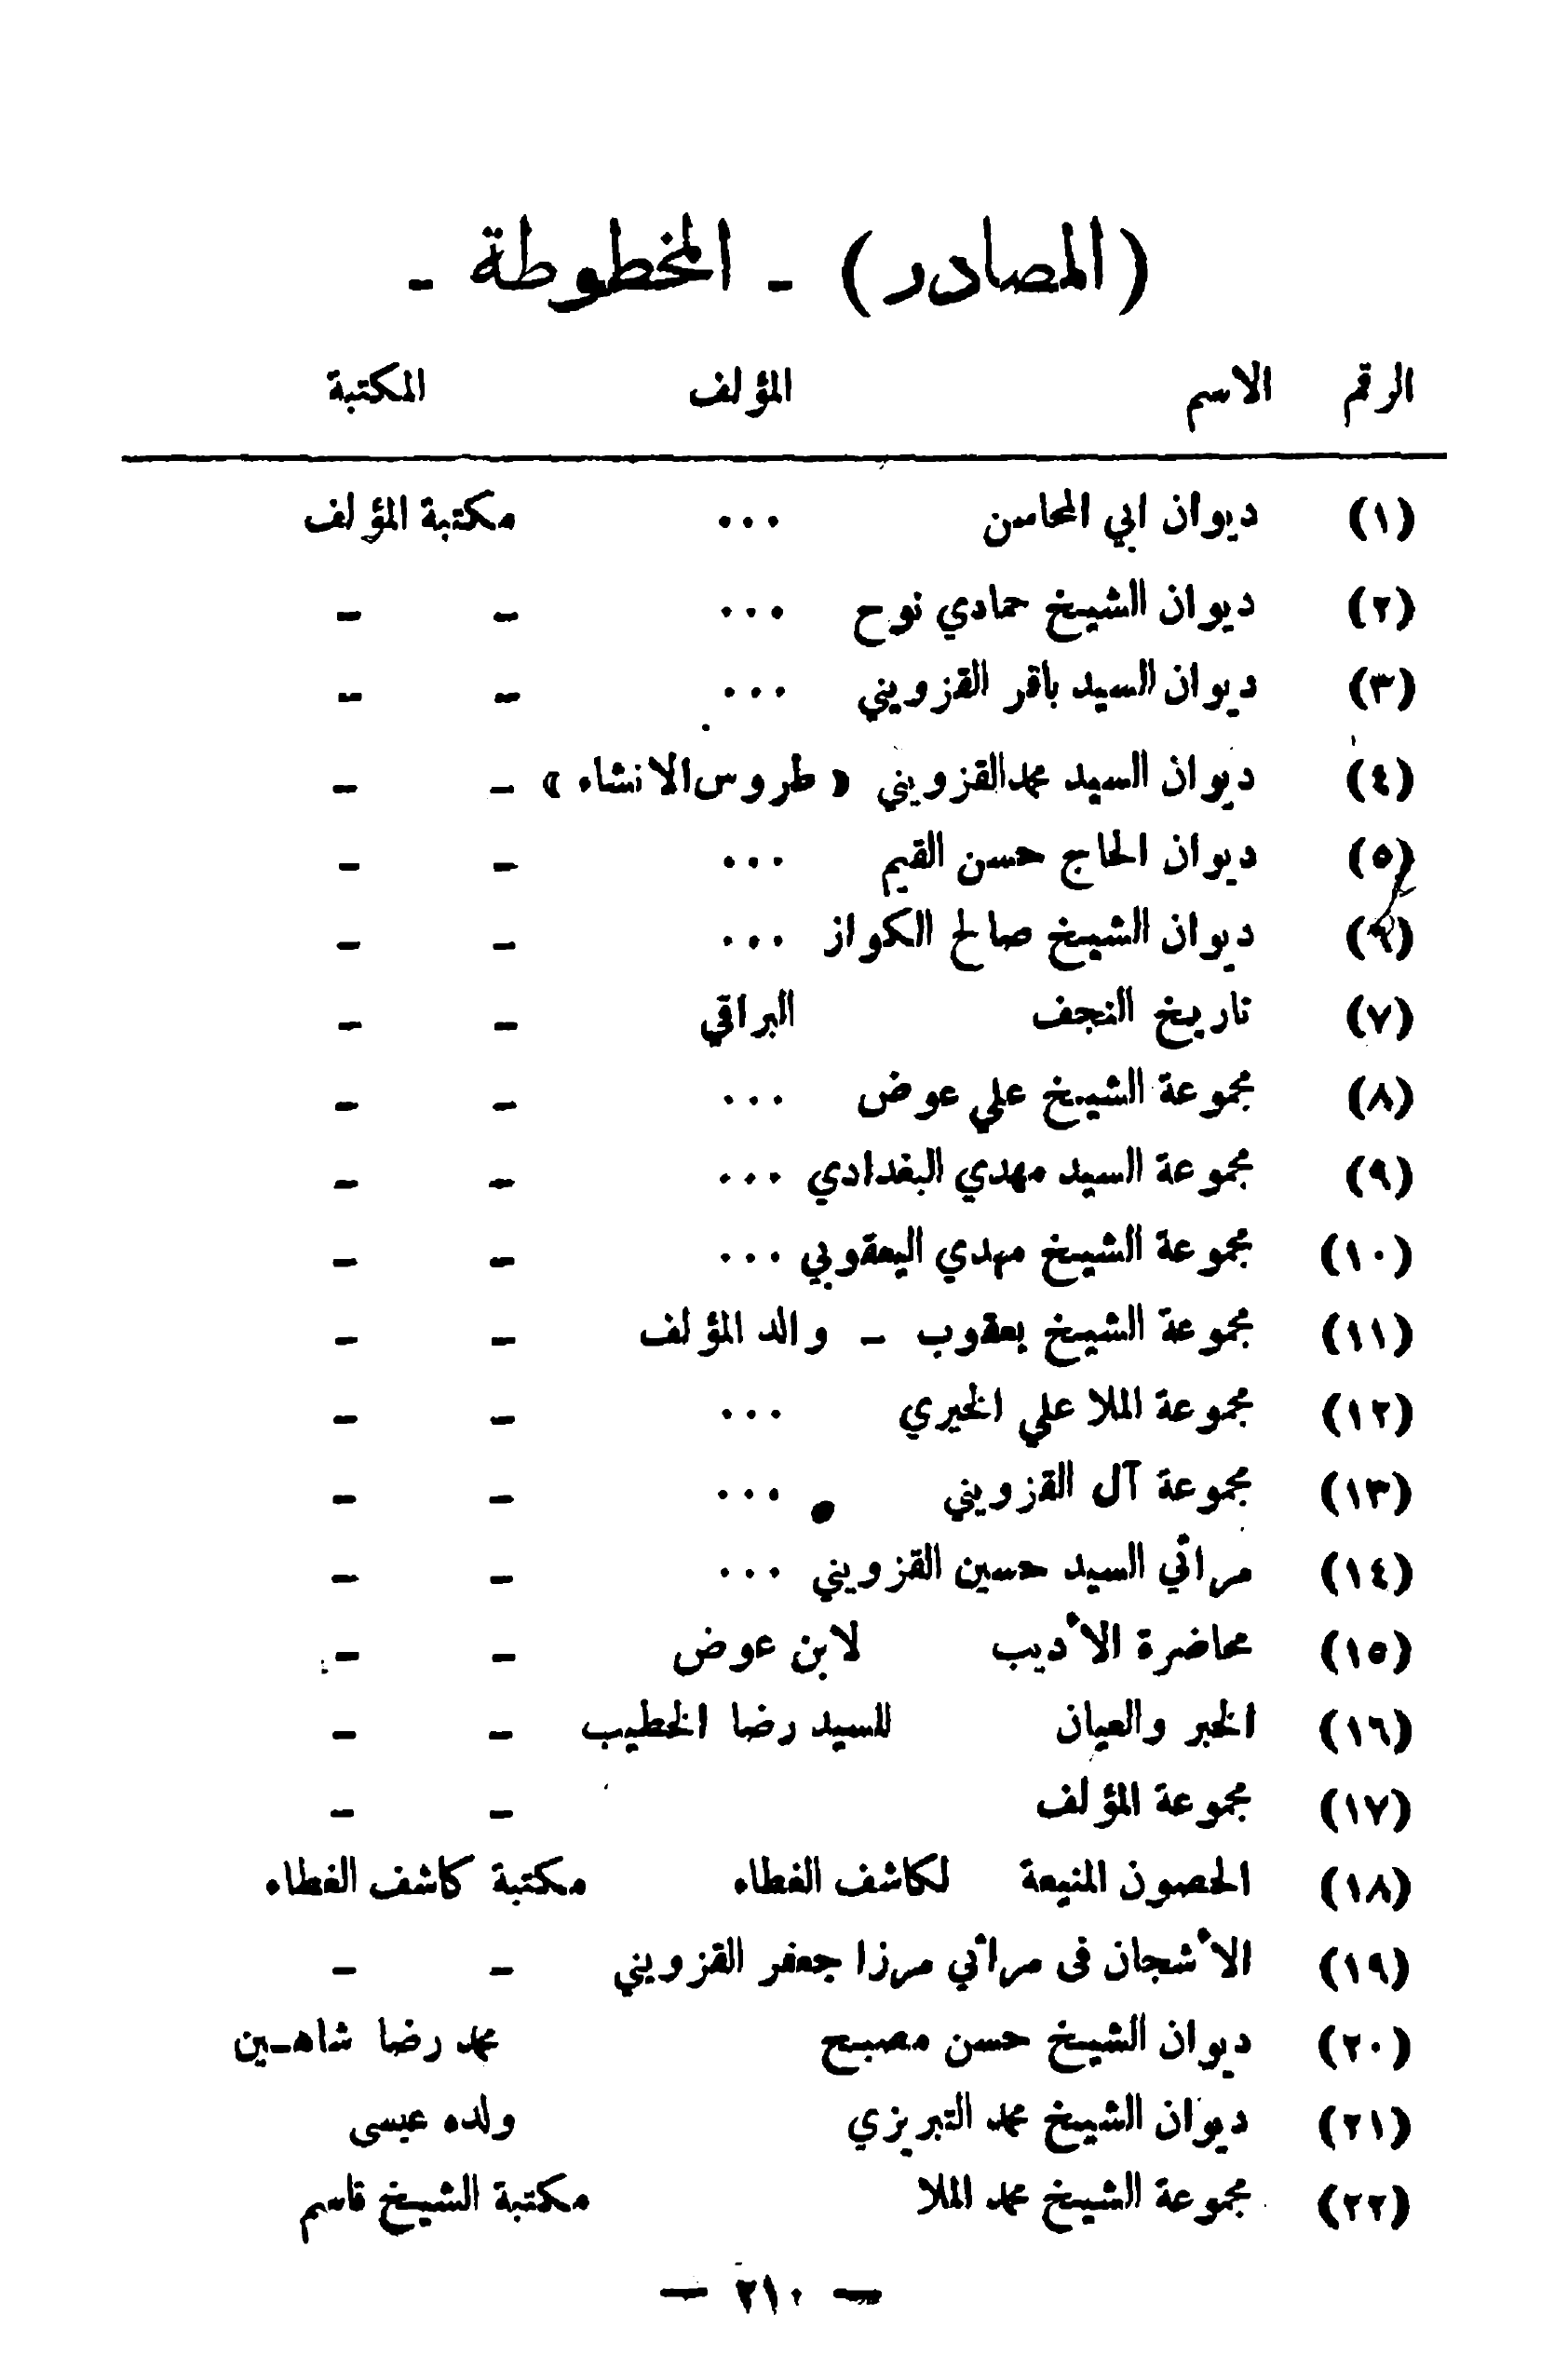 (المصادر) - المخطوطة -
الرقم الاسم المؤلف المكتبة
(١) ديوان ابي المحاسن ... مكتبة المؤلف
(٢) ديوان الشيخ حمادي نوح ... - -
(٣) ديوان السيد باقر القزويني ... - -
(٤) ديوان السيد محمد القزويني « طروس الانشاء » - -
(٥) ديوان الحاج حسن القيم ... - -
(٦) ديوان الشيخ صالح الكواز ... - -
(٧) تاريخ النجف البراقي - -
(٨) مجموعة الشيخ علي عوض ... - -
(٩) مجموعة السيد مهدي البغدادي ... - -
(١٠) مجموعة الشيخ مهدي اليعقوبي ... - -
(١١) مجموعة الشيخ يعقوب - والد المؤلف - -
(١٢) مجموعة الملا علي الخيري ... - -
(١٣) مجموعة آل القزويني ... - -
(١٤) مراثي السيد حسين القزويني ... - -
(١٥) محاضرة الأديب لابن عوض - -
(١٦) الخبر والعيان للسيد رضا الخطيب - -
(١٧) مجموعة المؤلف - -
(١٨) الحصون المنيعة لكاشف الغطاء مكتبة كاشف الغطاء
(١٩) الأشجان فى مراثي مرزا جعفر القزويني - -
(٢٠) ديوان الشيخ حسن مصبح محمد رضا شاهـين
(٢١) ديوان الشيخ محمد التبريزي ولده عيسى
(٢٢) مجموعة الشيخ محمد الملا مكتبة الشيخ قاسم
— ٢١٠ —